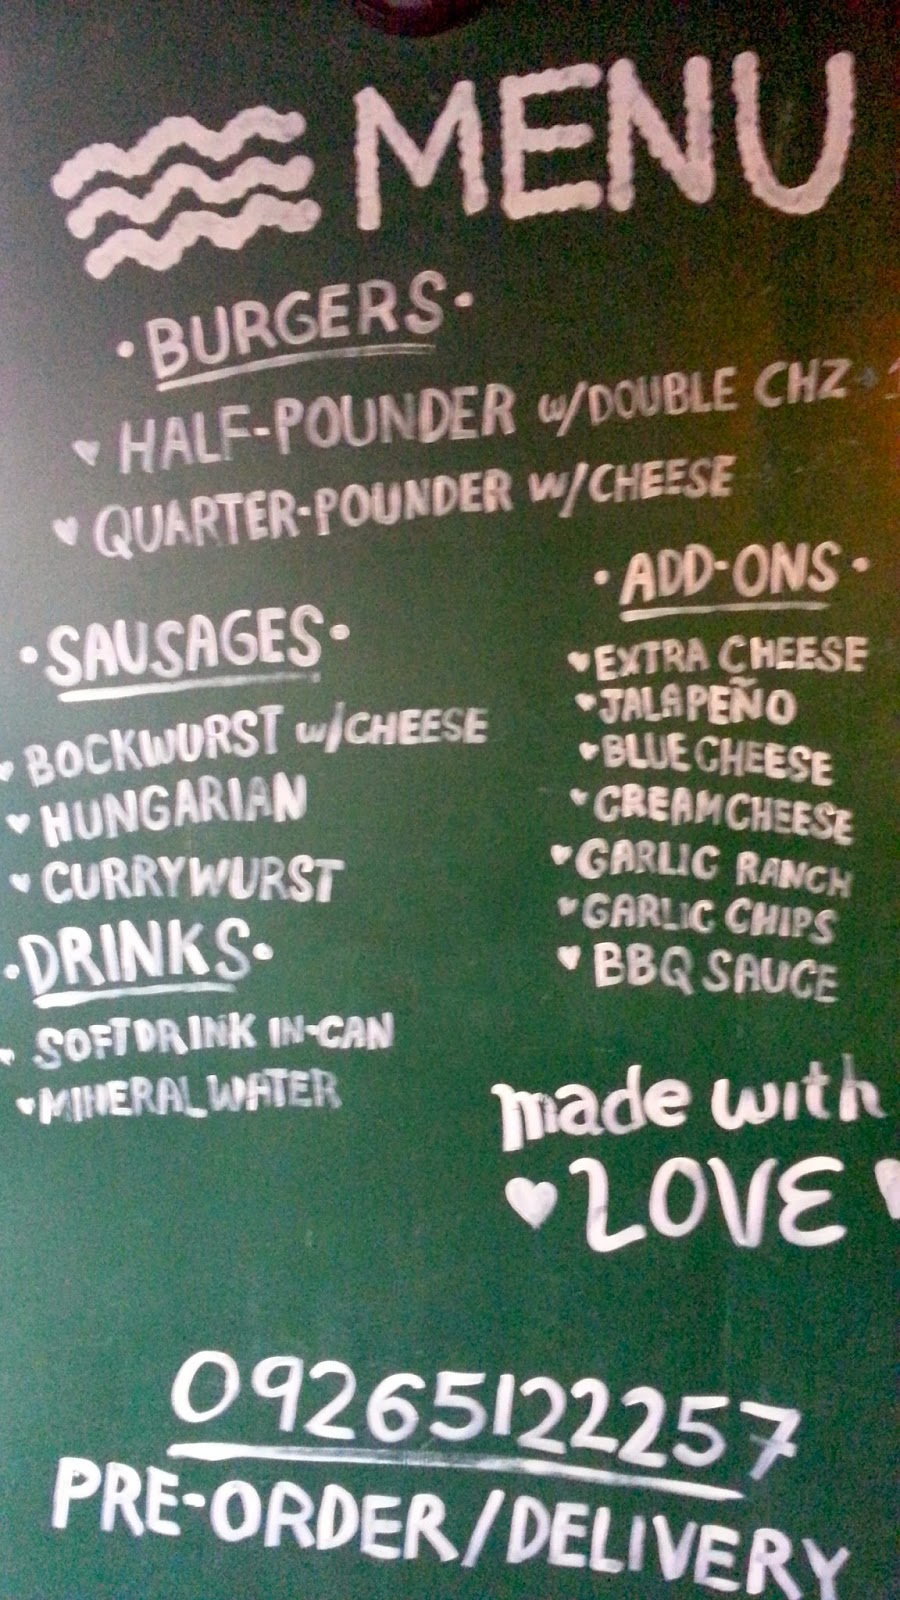 MENU
• BURGERS •
♥ HALF-POUNDER w/DOUBLE CHZ
♥ QUARTER-POUNDER w/CHEESE
• SAUSAGES •
♥ BOCKWURST w/CHEESE
♥ HUNGARIAN
♥ CURRYWURST
• DRINKS •
♥ SOFTDRINK IN-CAN
♥ MINERAL WATER
• ADD-ONS •
♥ EXTRA CHEESE
♥ JALAPEÑO
♥ BLUE CHEESE
♥ CREAM CHEESE
♥ GARLIC RANCH
♥ GARLIC CHIPS
♥ BBQ SAUCE
made with
♥ LOVE ♥
09265122257
PRE-ORDER/DELIVERY